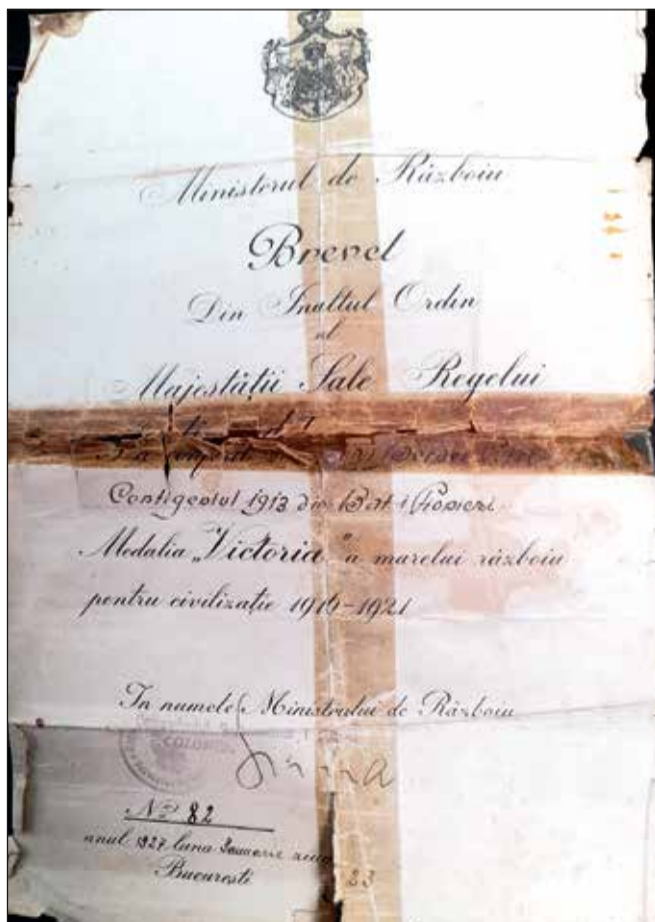 Ministerul de Războiu
Brevet
Din Inaltul Ordin
al
Majestăţii Sale Regelui
S'a conferit
Contigentul 1913 din Bat. 1 Pionieri
Medalia „Victoria" a marelui războiu
pentru civilizaţie 1916-1921
In numele Ministrului de Războiu
COLONEL
No 82
anul 1927 luna Ianuarie ziua
Bucureşti 23